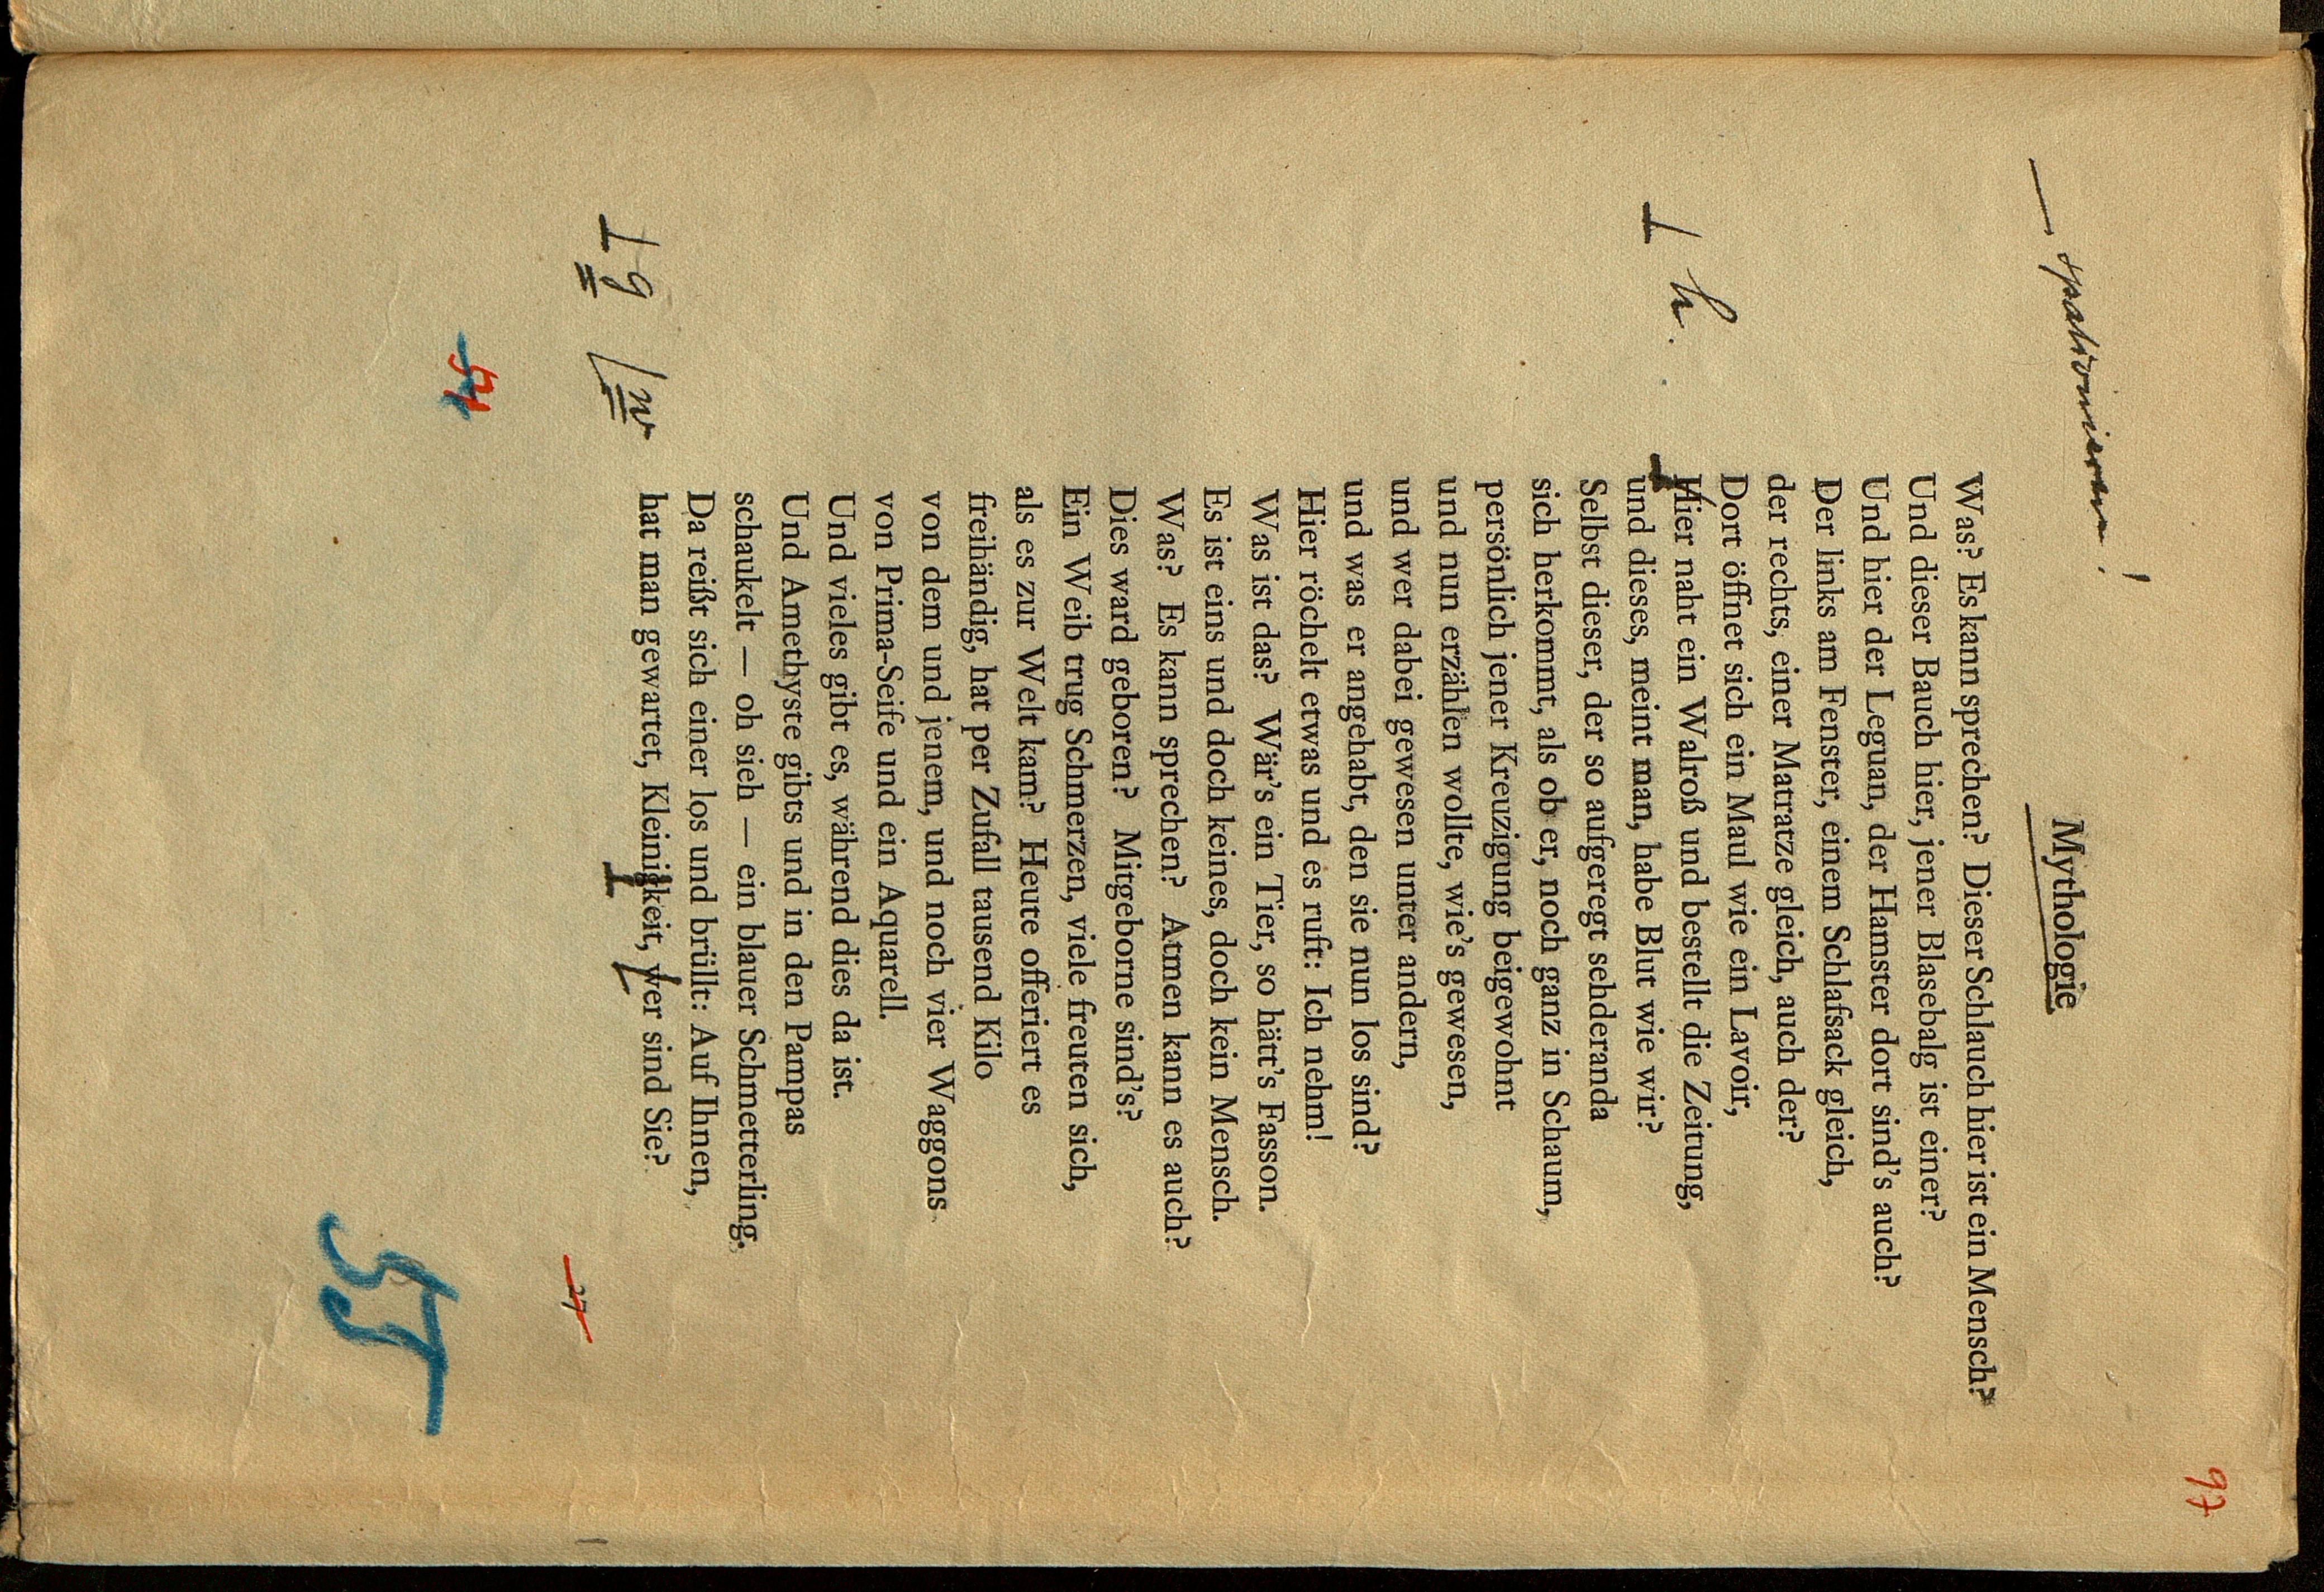 97
— spationieren!
Mythologie
Was? Es kann sprechen? Dieser Schlauch hier ist ein Mensch?
Und dieser Bauch hier, jener Blasebalg ist einer?
Und hier der Leguan, der Hamster dort sind's auch?
Der links am Fenster, einem Schlafsack gleich,
der rechts, einer Matratze gleich, auch der?
Dort öffnet sich ein Maul wie ein Lavoir,
h.
Hier naht ein Walroß und bestellt die Zeitung,
und dieses, meint man, habe Blut wie wir?
Selbst dieser, der so aufgeregt sehderanda
sich herkommt, als ob er, noch ganz in Schaum,
persönlich jener Kreuzigung beigewohnt
und nun erzählen wollte, wie's gewesen,
und wer dabei gewesen unter andern,
und was er angehabt, den sie nun los sind?
Hier röchelt etwas und es ruft: Ich nehm!
Was ist das? Wär's ein Tier, so hätt's Fasson.
Es ist eins und doch keines, doch kein Mensch.
Was? Es kann sprechen? Atmen kann es auch?
Dies ward geboren? Mitgeborne sind's?
Ein Weib trug Schmerzen, viele freuten sich,
als es zur Welt kam? Heute offeriert es
freihändig, hat per Zufall tausend Kilo
von dem und jenem, und noch vier Waggons
von Prima-Seife und ein Aquarell.
Und vieles gibt es, während dies da ist.
Und Amethyste gibts und in den Pampas
schaukelt — oh sieh — ein blauer Schmetterling.
Da reißt sich einer los und brüllt: Auf Ihnen,
g w
hat man gewartet, Kleinigkeit, wer sind Sie?
27
55